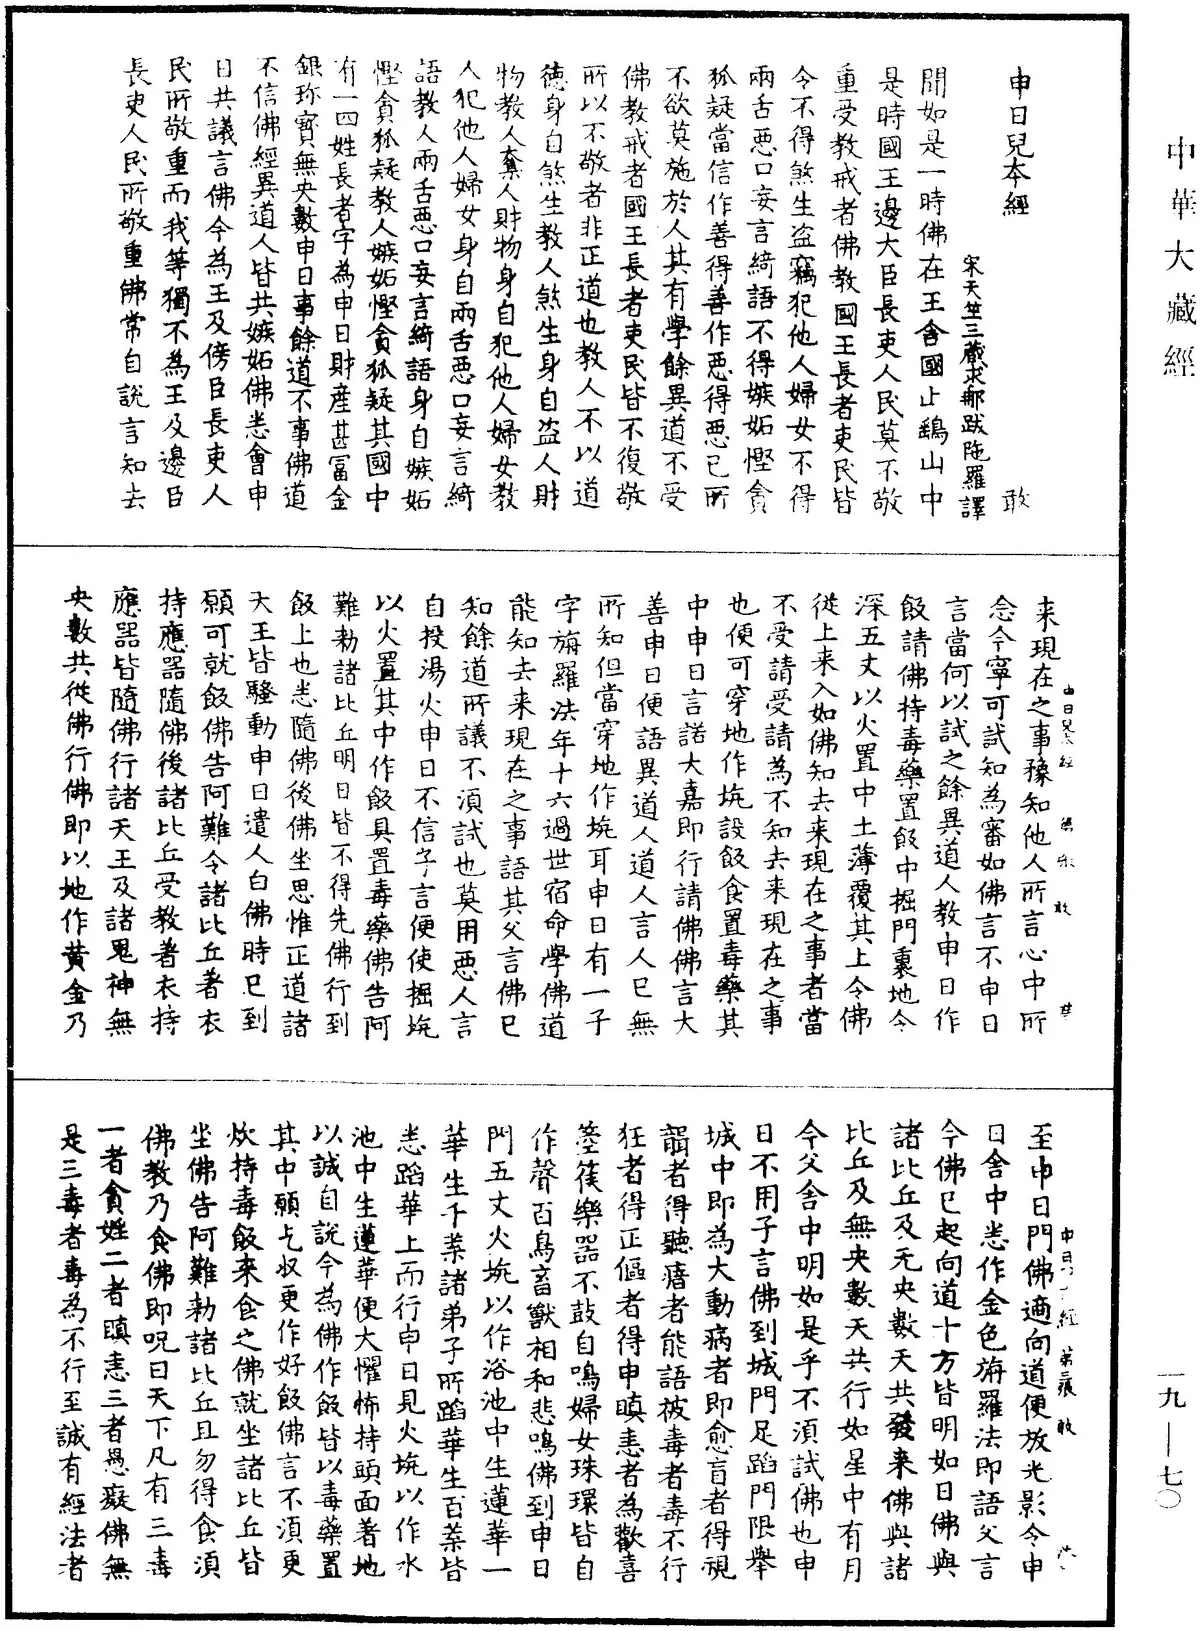 中華大藏經
申日兒本經　敢
宋天竺三藏求那跋陁羅譯
聞如是一時佛在王舍國止鷂山中
是時國王邊大臣長吏人民莫不敬
重受教戒者佛教國王長者吏民皆
令不得煞生盜竊犯他人婦女不得
兩舌惡口妄言綺語不得嫉妬慳貪
狐疑當信作善得善作惡得惡己所
不欲莫施於人其有學餘異道不受
佛教戒者國王長者吏民皆不復敬
所以不敬者非正道也教人不以道
德身自煞生教人煞生身自盜人財
物教人奪人財物身自犯他人婦女教
人犯他人婦女身自兩舌惡口妄言綺
語教人兩舌惡口妄言綺語身自嫉妬
慳貪狐疑教人嫉妬慳貪狐疑其國中
有一四姓長者字為申日財産甚冨金
銀珎寶無央數申日事餘道不事佛道
不信佛經異道人皆共嫉妬佛悉會申
日共議言佛今為王及傍臣長吏人
民所敬重而我等獨不為王及邊臣
長吏人民所敬重佛常自說言知去
来現在之事豫知他人所言心中所
念今寧可試知為審如佛言不申日
言當何以試之餘異道人教申日作
飯請佛持毒藥置飯中掘門裏地令
深五丈以火置中土薄覆其上令佛
從上来入如佛知去来現在之事者當
不受請受請為不知去来現在之事
也便可穿地作坑設飯食置毒藥其
中申日言諾大嘉即行請佛佛言大
善申日便語異道人道人言人已無
所知但當穿地作坑耳申日有一子
字旃羅法年十六過世宿命學佛道
能知去来現在之事語其父言佛已
知餘道所議不須試也莫用惡人言
自投湯火申日不信子言便使掘坑
以火置其中作飯具置毒藥佛告阿
難勑諸比丘明日皆不得先佛行到
飯上也悉隨佛後佛坐思惟正道諸
天王皆騷動申日遣人白佛時已到
願可就飯佛告阿難令諸比丘著衣
持應器隨佛後諸比丘受教著衣持
應器皆隨佛行諸天王及諸鬼神無
央數共從佛行佛即以地作黄金乃
至申日門佛適向道便放光影令申
日舍中悉作金色旃羅法即語父言
今佛已起向道十方皆明如日佛與
諸比丘及无央數天共發来佛與諸
比丘及無央數天共行如星中有月
今父舍中明如是乎不須試佛也申
日不用子言佛到城門足蹈門限舉
城中即為大動病者即愈盲者得視
聾者得聽瘖者能語被毒者毒不行
狂者得正傴者得申瞋恚者為歡喜
箜篌樂器不鼓自鳴婦女珠環皆自
作聲百鳥畜獸相和悲鳴佛到申日
門五丈火坑以作浴池中生蓮華一
華生千葉諸弟子所蹈華生百葉皆
悉蹈華上而行申日見火坑以作水
池中生蓮華便大懼怖持頭面著地
以誠自說今為佛作飯皆以毒藥置
其中願乞収更作好飯佛言不須更
炊持毒飯来食之佛就坐諸比丘皆
坐佛告阿難勑諸比丘且勿得食須
佛教乃食佛即呪曰天下凡有三毒
一者貪婬二者瞋恚三者愚癡佛無
是三毒者毒為不行至誠有經法者
一九—七〇